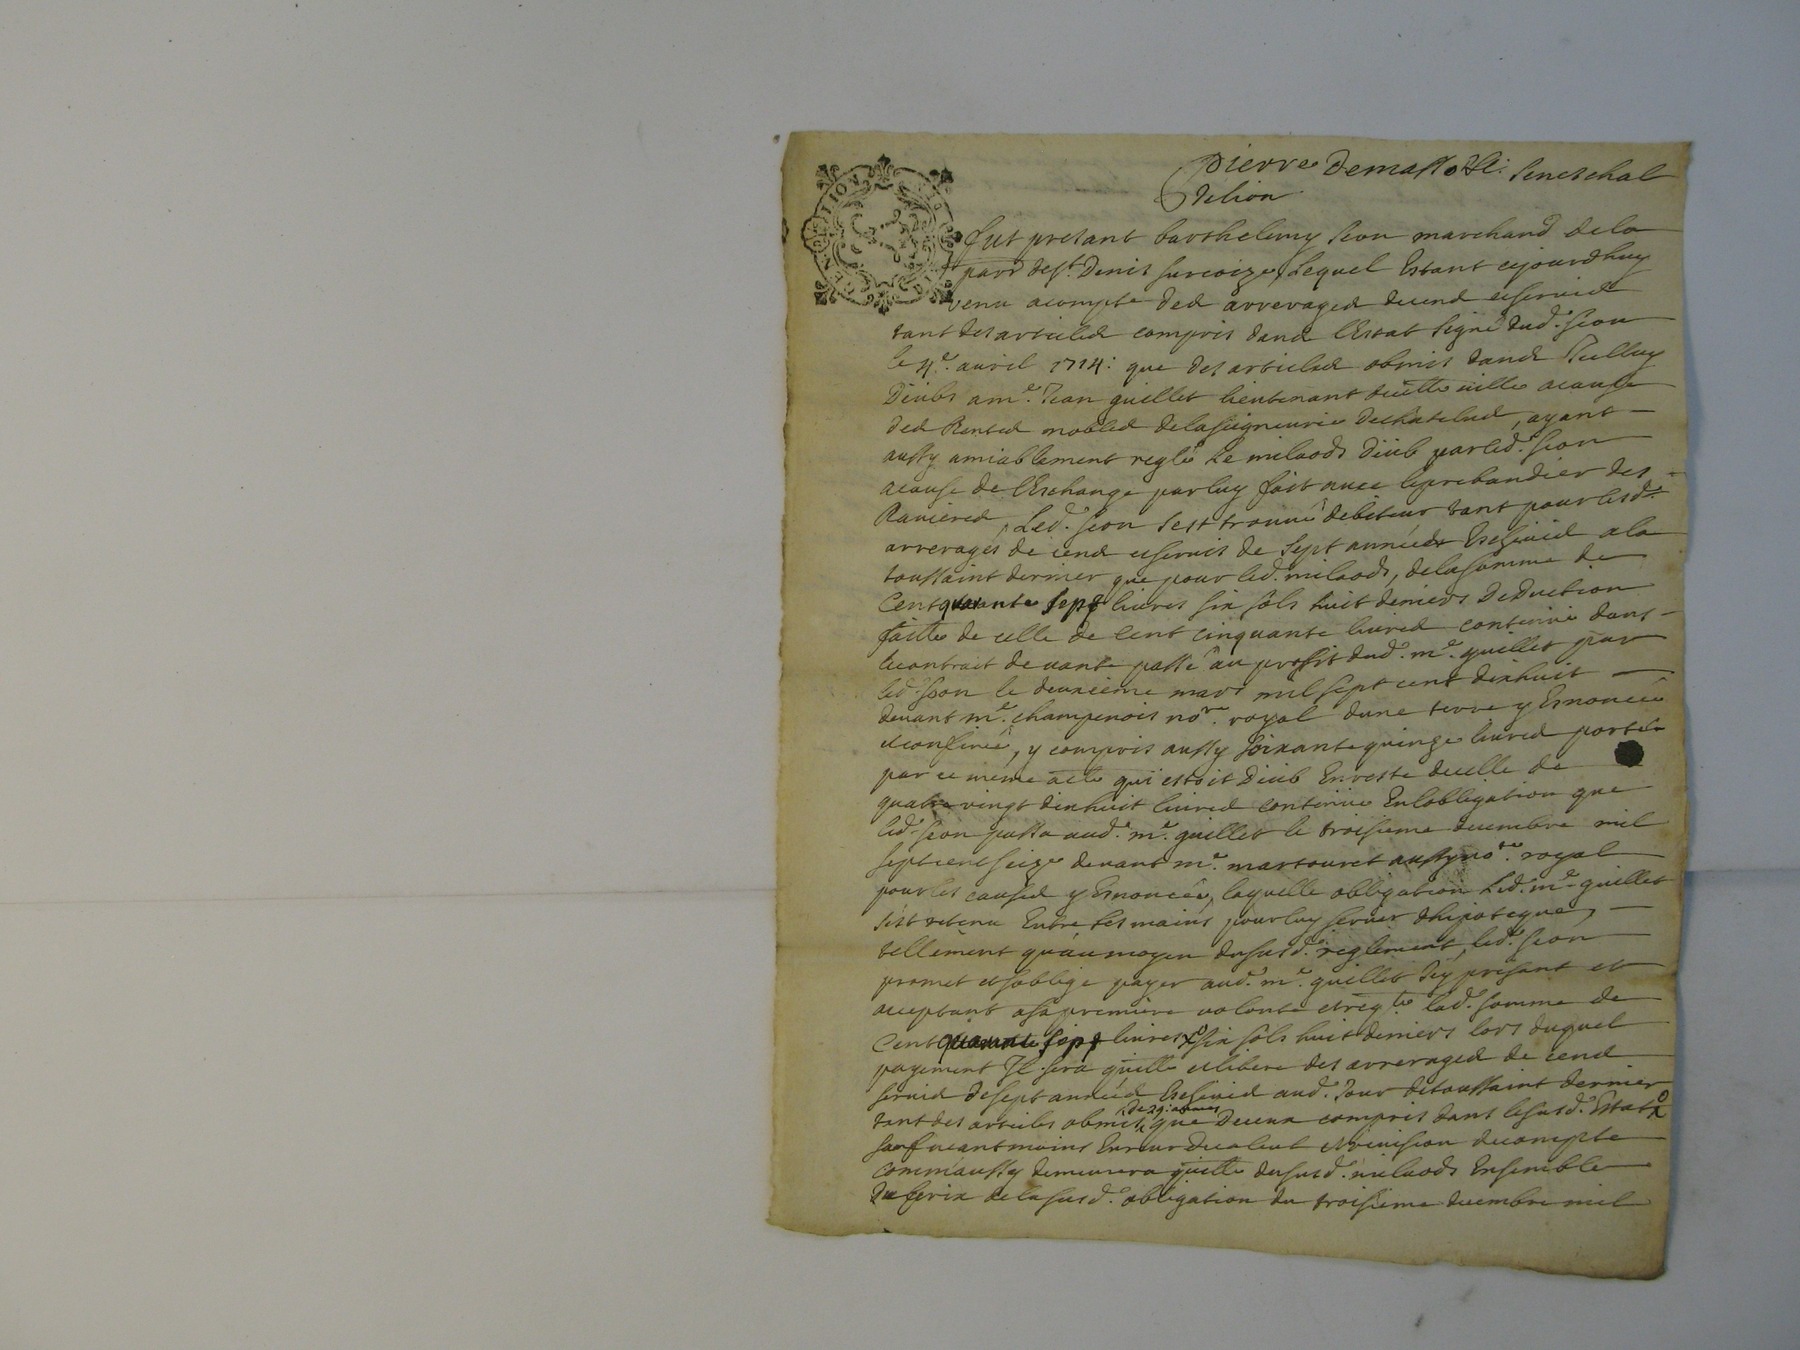 Pierre Demasso &c. Seneschal
delion
fut presant barthelemy seon marchand dela
parr. de st. Denis surcoize, Lequel Estant cejourdhuy
venu acompte des arrerages de cens et servis
tant des articles compris dans lEstat signé dud. seon
le 4e. avril 1714: que des articles obmis dans Icelluy
Deubs a me. Jean quillet lieutenant de cette ville acause
des Rentes nobles dela seigneurie de chatelus, ayant
aussy amiablement reglé Le milaods deub par led. seon
acause de lEschange par luy fait avec le prebandier des
Ravieres, Led. seon sest trouvé debiteur tant pour lesd.
arrerages de cens et servis de sept années Escheues ala
toussaint dernier que pour led. milaods, dela somme de
Cent quarante sept livres six sols huit deniers Deduction
faitte de celle de Cent cinquante livres contenue dans
le contrait de vante passé au proffit dud. me. quillet par
led. seon le deuxieme mars mil sept cent dixhuit
devant me. champenois nore. royal dune terre y Enoncée
et confinée, y compris aussy soixante quinze livres portés
par ce meme acte qui estoit deub En reste de celle de
quatre vingt dixhuit livres contenue En lobligation que
led. seon passa aud. me. quillet le troisieme decembre mil
sept cent seize devant me. martouret aussy nore. royal
pour les causes y Enoncées, laquelle obligation Led. me. quillet
sest retenu Entre ses mains pour luy servir dhipoteque,
tellement quau moyen du susd. reglement, led. seon
promet et soblige payer aud. me. quillet Icy présant et
acceptant asa premiere volonté et reqte. lad. somme de
Cent quarante sept livres six sols huit deniers lors duquel
payement Il sera quitte et libere des arrerages de cens
servis de sept années Escheues aud. Jour de toussaint dernier
tant des articles obmis de 29: années que De ceux compris dans le susd. Estat
sauf neantmoins Erreur de calcul et revision de compte
comme aussy demeurera quitte du susd. milaods Ensemble
de la susd. obligation du troisieme decembre mil